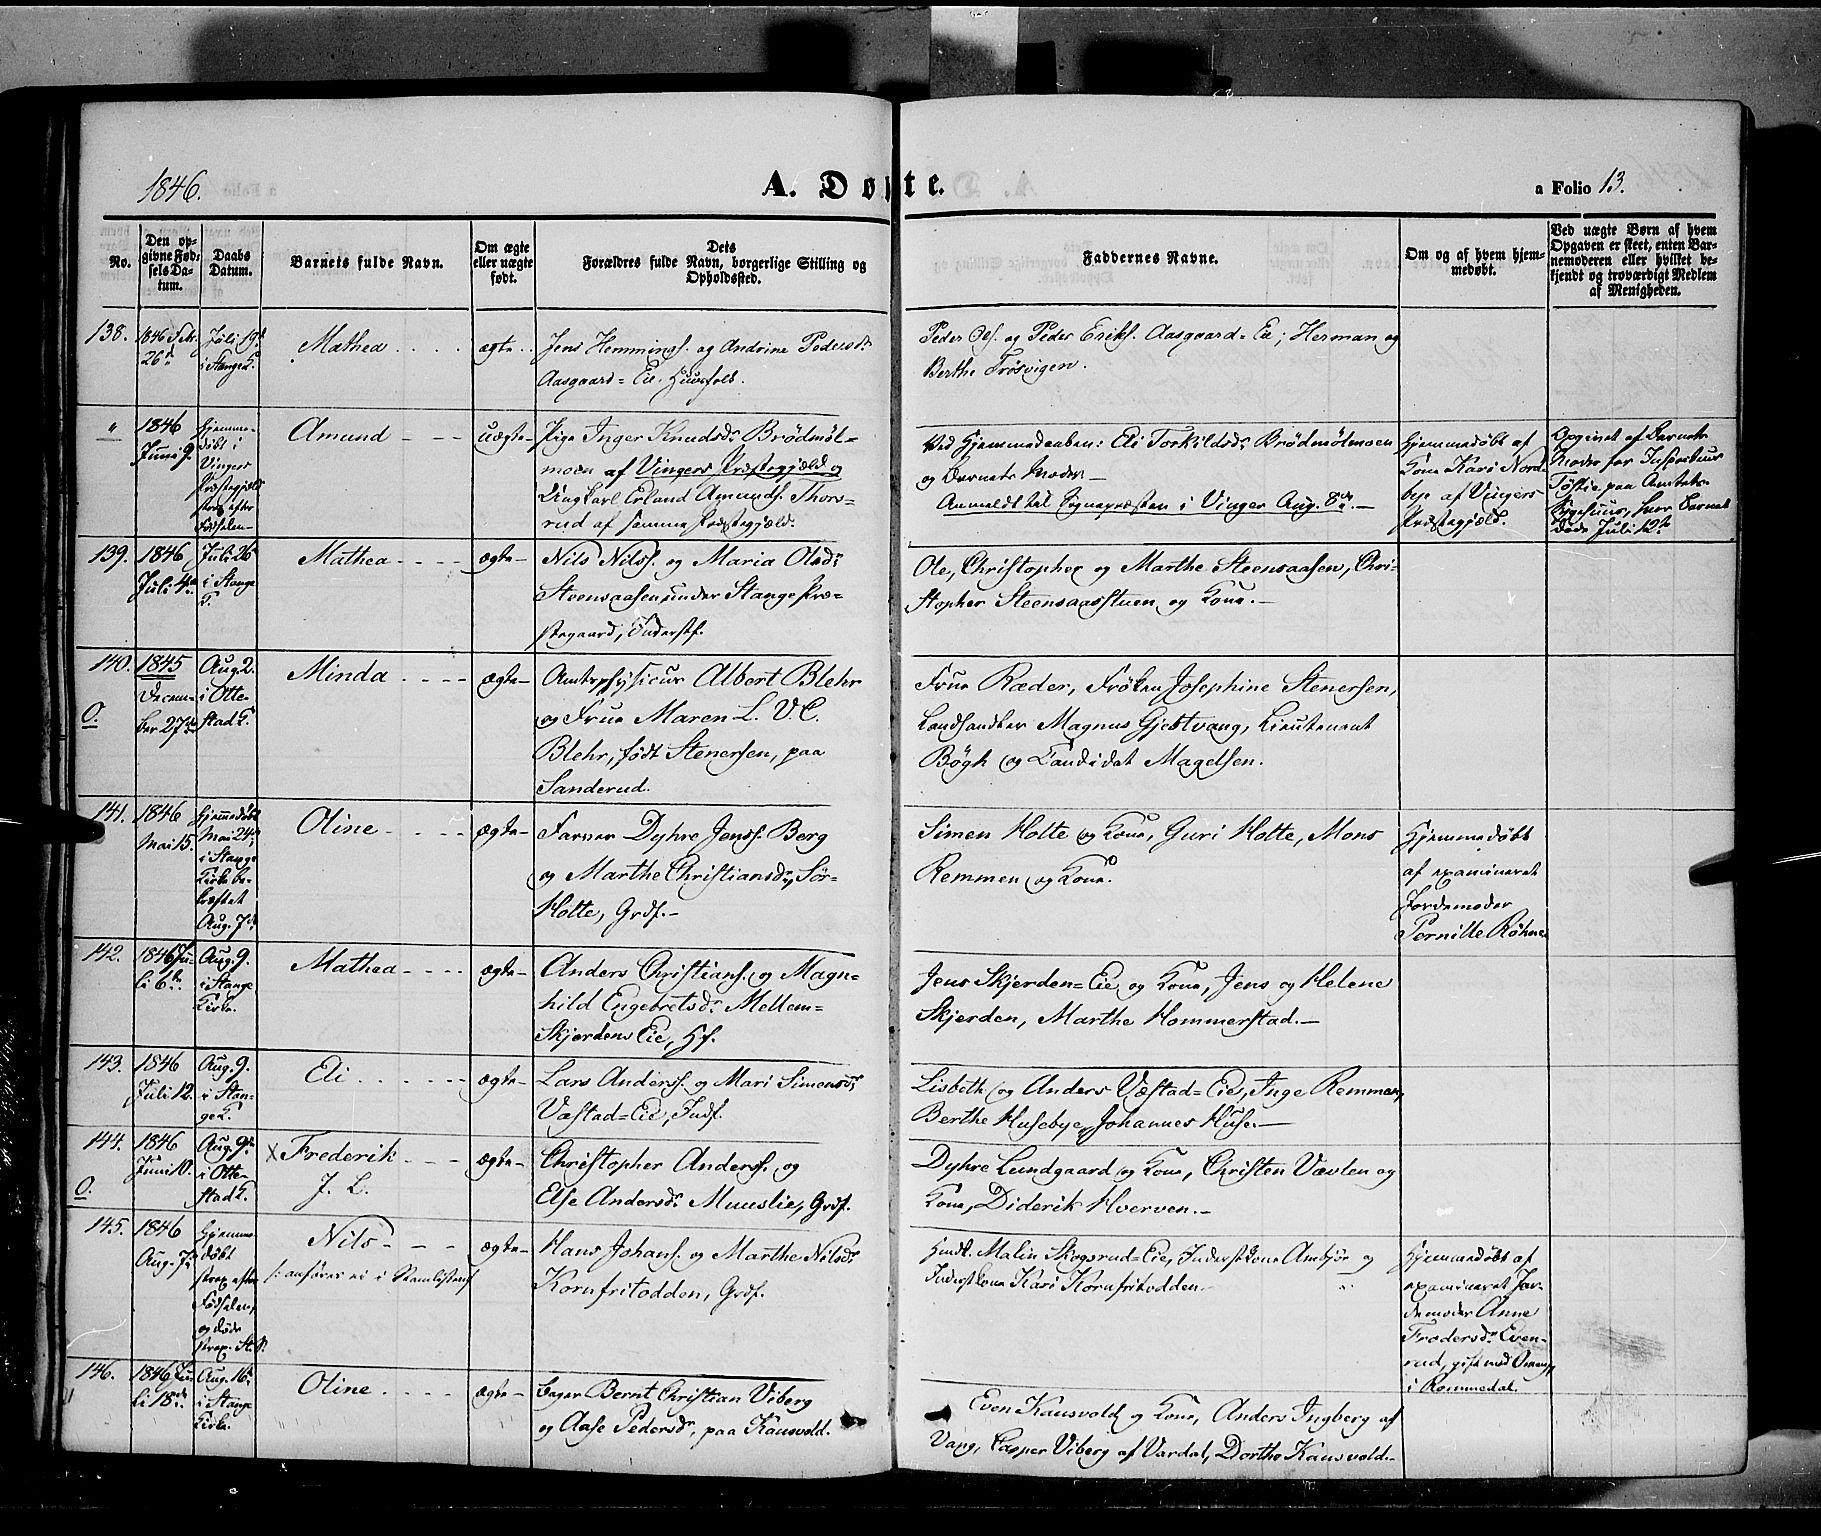 1846.
A. Døpte.
a Folio 13.
No.
Den op-
givne Fød-
sels Da-
tum.
Daabs
Datum.
Barnets fulde Navn.
Om ægte
eller uægte
født.
Dets
Forældres fulde Navn, borgerlige Stilling og
Opholdssted.
Faddernes Navne.
Om og af hvem hjem-
medøbt.
Ved uægte Børn af hvem
Opgaven er skeet, enten Bar-
nemoderen eller hvilket be-
kjendt og troværdigt Medlem
af Menigheden.
138.
1846
26d
Juli 19d
i Stange K.
Mathea
ægte
Jens Hemmings. og Andrine Pedersdr
Aasgaard=Eie, Huusfolk.
Peder Ols. og Peder Eriks. Aasgaard=Eie; Herman og
Berthe Frøsvigen.
"
1846
Juni 9.
Hjemme-
døbt i
Vingers
Præstegjeld
strax efter
Fødselen-
Amund
uægte
Pige Inger Knudsdr Brødmøl-
moen af Vingers Præstegjeld og
Ungkarl Erland Amunds. Thors-
rud af samme Præstegjæld.
Ved Hjemmedaaben: Eli Torkildsdr Brødmølmoen
og Barnets Moder-
Anmeldt til Sognepræsten i Vinger Aug. 8de.-
Hjemmedøbt af
Kone Kari Nord-
bye af Vingers
Præstegjæld.
Opgivet af Barnets
Moder for
paa Amtets
Sygehuus, hvor Barnet
døde Juli 12te
139.
1846
Juli 4de
Juli 26
i Stange
K.
Mathea
ægte
Nils Nilss. og Maria Olsdr
Steensaasen under Stange Præ-
stegaard, Inderstf.
Ole, Christopher og Marthe Steensaasen, Chri-
stopher Steensaasstuen og Kone.-
140.
O.
1845
Decem-
ber 27de
Aug. 2.
i Otte-
stad K.
Minda
ægte
Amtsphysicus Albert Blehr
og Frue Maren L. V. C.
Blehr, født Stenersen, paa
Sanderud.
Frue Ræder, Frøken Josephine Stenersen,
Landhandler Magnus Gjestvang, Lieutenant
Bøgh og Candidat Magelsen.
141.
1846
Mai 15.
Hjemmedøbt
Mai 24de
i Stange
Kirke be-
kræftet
Aug. 7de
Oline
ægte
Farver Dyhre Jenss. Berg
og Marthe Christiansdr, Sør-
Holte, Grdf.-
Simen Holte og Kone, Guri Holte, Mons
Remmen og Kone.
Hjemmedøbt
af examineret
Jordemoder
Pernille Røhne
142.
1846 Ju-
li 6te
Aug. 9.
i Stange
Kirke.
Mathea
ægte
Anders Christians. og Magn-
hild Engebretsdr Mellem-
Skjerdens Eie, Hf.
Jens Skjerden=Eie og Kone, Jens og Helene
Skjerden, Marthe Hommerstad.-
143.
1846
Juli 12.
Aug. 9.
i Stan-
ge K.
Eli
ægte
Lars Anderss. og Mari Simensdr
Væstad=Eie, Indf.
Lisbeth og Anders Væstad=Eie, Inge Remmen,
Berthe Husebye, Johannes Huse.-
144.
O.
1846
Juni 10.
Aug. 9de
i Otte-
stad K.
X Frederik
J. L.
ægte
Christopher Anderss. og
Else Andersdr Muuslie, Grdf.
Dyhre Lundgaard og Kone, Christen Vævlen og
Kone, Diderik Hverven.-
145.
1846
Aug. 7de
Hjemme-
døbt
strax efter
Fødselen,
og døde
strax.
Nils
/: anføres ei i Stamlisten
ægte
Hans Johans. og Marthe Nilsdr
Kornfritodden, Grdf.
Malin Skogsrud=Eie, Inderstkone Ambjør og
Inderstkone Kari Kornfritodden
Hjemmedøbt af
examineret Jor-
demoder Anne
Fredersdr Even-
rud, gift med
i Rommedal.
146.
1846 Ju-
li 18de
Aug. 16de
i Stange
Kirke.
Oline
ægte
Bager Bernt Christian Viberg
og Aase Pedersdr, paa Kausvold.
Even Kausvold og Kone, Anders Ingberg af
Vang, Casper Viberg af Vardal, Dorthe Kausvold.-